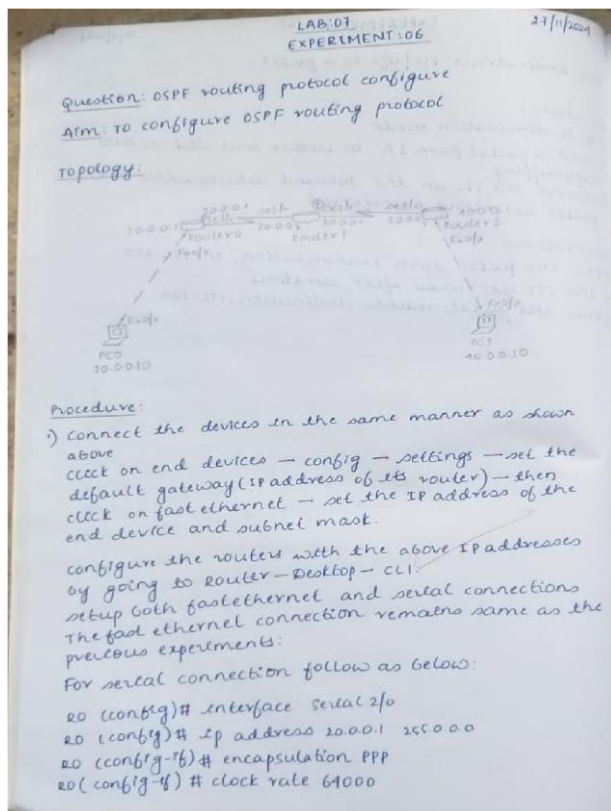 LAB:07
27/11/2024
EXPERIMENT:06
Question: OSPF routing protocol configure
Aim: TO configure OSPF routing protocol
Topology:
20.0.0.1
10.0.0.1
20.0.0.2
30.0.0.1
Router0
Router1
Router2
Fa0/0
Fa0/0
Fa0/0
PC0
10.0.0.10
PC1
40.0.0.10
Procedure:
1) Connect the devices in the same manner as shown
above
click on end devices – config – settings – set the
default gateway (IP address of its router) – then
click on fast ethernet – set the IP address of the
end device and subnet mask.
configure the routers with the above IP addresses
by going to Router – Desktop – CLI.
setup both fastethernet and serial connections
The fast ethernet connection remains same as the
previous experiments:
For serial connection follow as below:
R0 (config)# interface serial 2/0
R0 (config)# ip address 20.0.0.1 255.0.0.0
R0 (config-if)# encapsulation PPP
R0 (config-if) # clock rate 64000